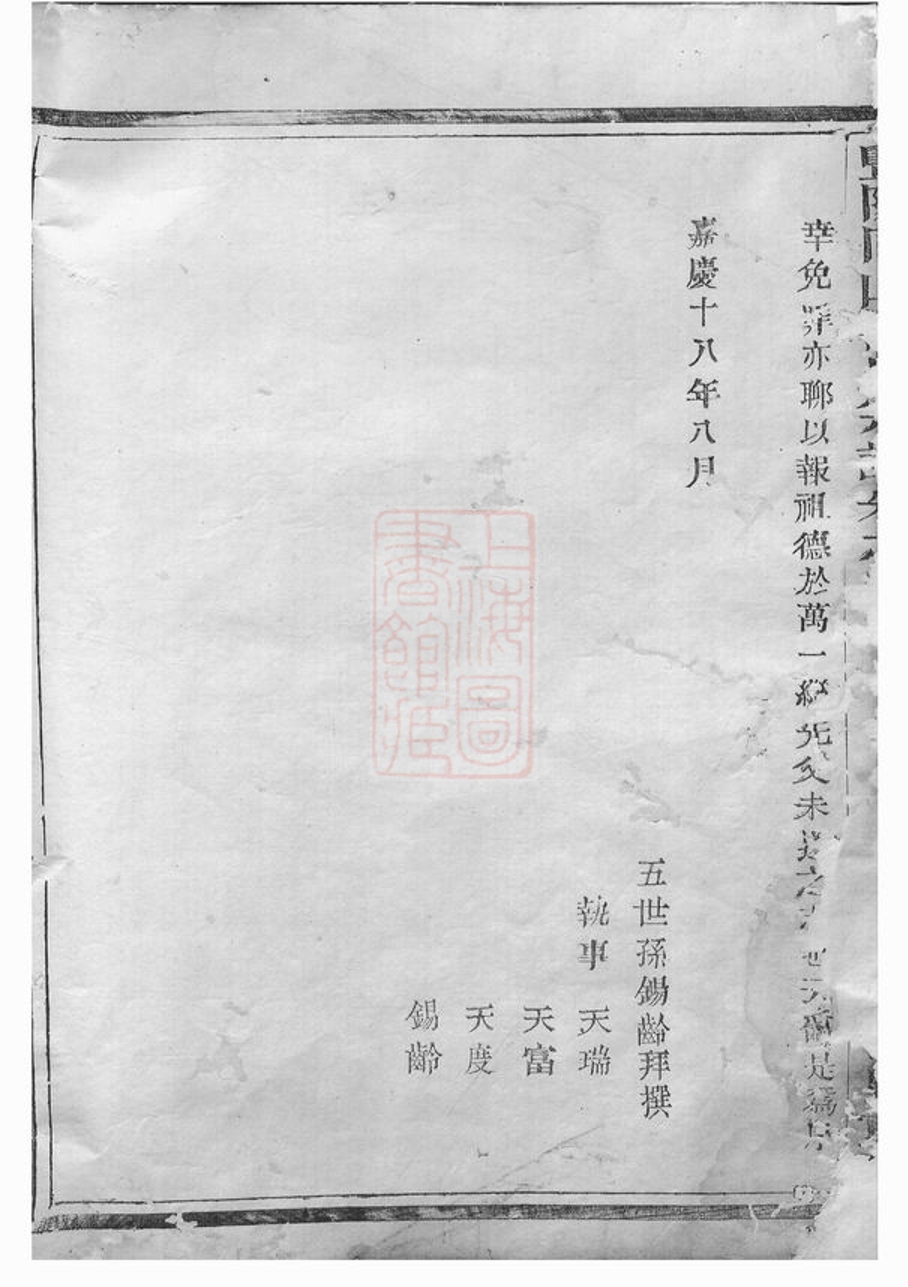 幸免罪亦聊以報祖德於萬一繼先父未是為序
嘉慶十八年八月
五世孫錫齡拜撰
執事 天瑞
天富
天度
錫齡
上海圖書館藏